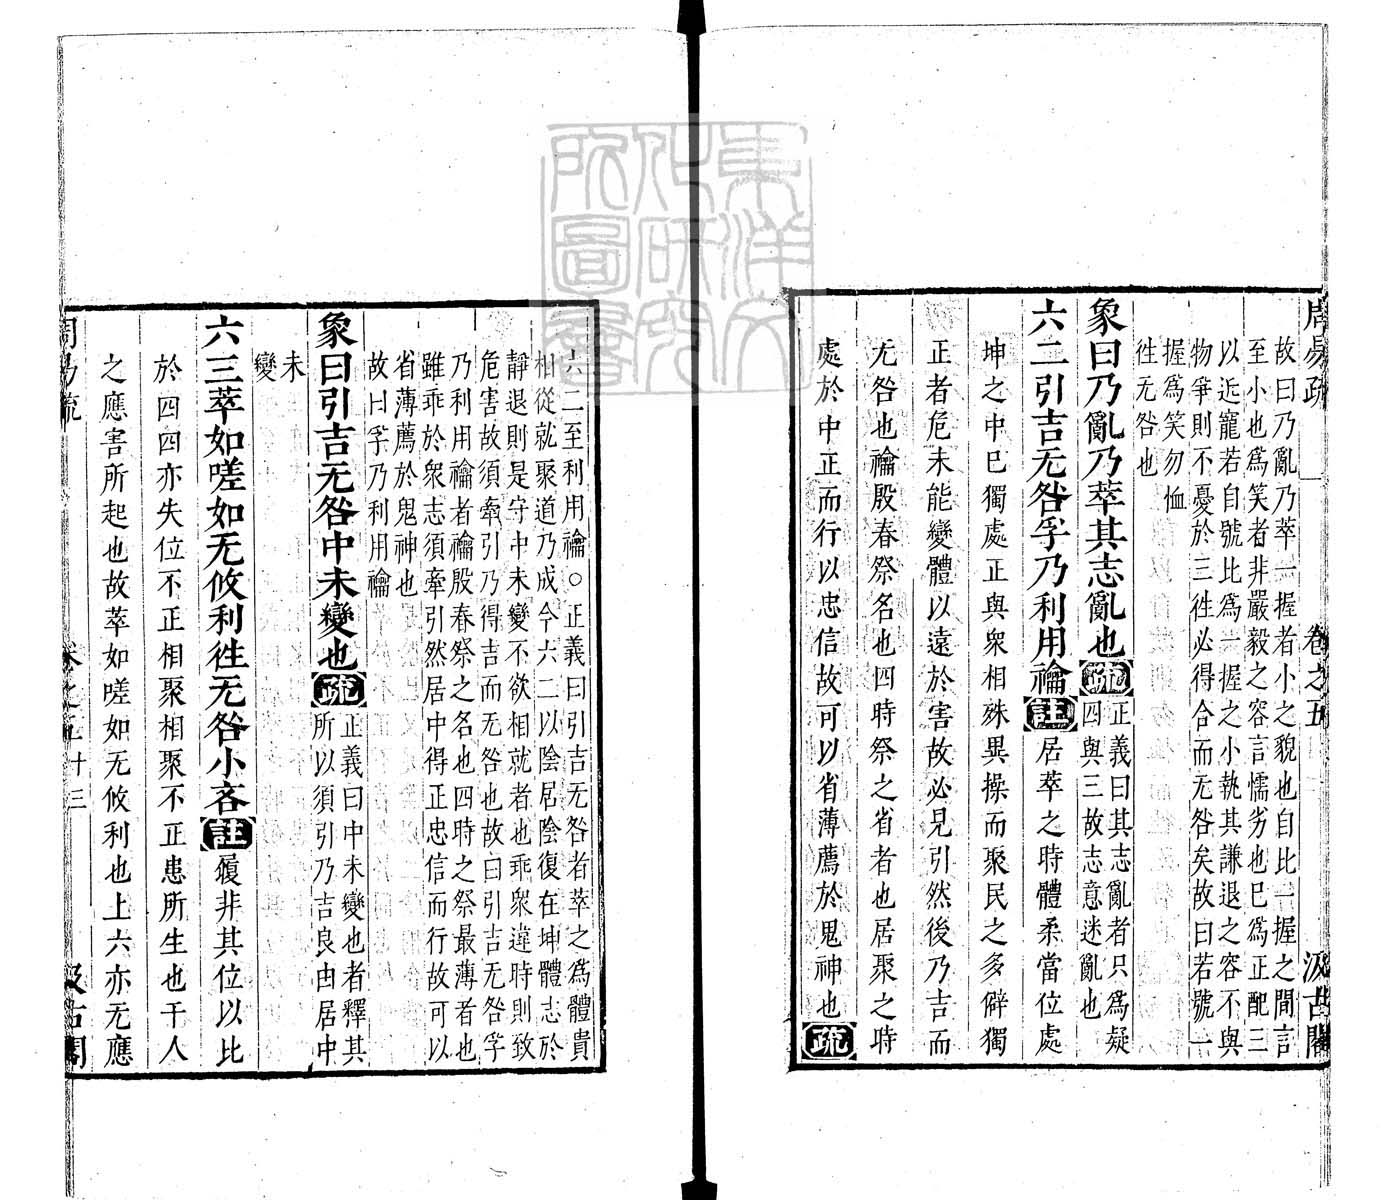 周易疏 卷之五 汲古閣
故曰乃亂乃萃一握者小之貌也自比一握之間言
至小也爲笑者非嚴毅之容言懦劣也巳爲正配三
以近寵若自號比爲一握之小執其謙退之容不與
物爭則不憂於三徃必得合而无咎矣故曰若號一
握爲笑勿恤
徃无咎也
象曰乃亂乃萃其志亂也疏正義曰其志亂者只爲疑
四與三故志意迷亂也
六二引吉无咎孚乃利用禴註居萃之時體柔當位處
坤之中巳獨處正與衆相殊異操而聚民之多僻獨
正者危未能變體以遠於害故必見引然後乃吉而
无咎也禴殷春祭名也四時祭之省者也居聚之時
處於中正而行以忠信故可以省薄薦於鬼神也疏
六二至利用禴○正義曰引吉无咎者萃之爲體貴
相從就聚道乃成今六二以陰居陰復在坤體志於
靜退則是守中未變不欲相就者也乖衆違時則致
危害故須牽引乃得吉而无咎也故曰引吉无咎孚
乃利用禴者禴殷春祭之名也四時之祭最薄者也
雖乖於衆志須牽引然居中得正忠信而行故可以
省薄薦於鬼神也
故曰孚乃利用禴
象曰引吉无咎中未變也疏正義曰中未變也者釋其
所以須引乃吉良由居中
未
變
六三萃如嗟如无攸利徃无咎小吝註履非其位以比
於四四亦失位不正相聚相聚不正患所生也干人
之應害所起也故萃如嗟如无攸利也上六亦无應
周易疏 卷之五 十三 汲古閣
東洋文化研究所圖書